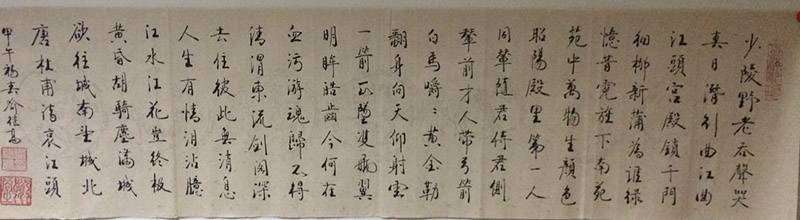 少陵野老吞聲哭
春日潛行曲江曲
江頭宮殿鎖千門
細柳新蒲為誰綠
憶昔霓旌下南苑
苑中萬物生顏色
昭陽殿里第一人
同輦隨君侍君側
輦前才人帶弓箭
白馬嚼〻黃金勒
翻身向天仰射雲
一箭正墜雙飛翼
明眸皓齒今何在
血污游魂歸不得
清渭東流劍閣深
去住彼此無消息
人生有情泪沾臆
江水江花豈終極
黃昏胡騎塵滿城
欲往城南望城北
唐杜甫詩哀江頭
甲午